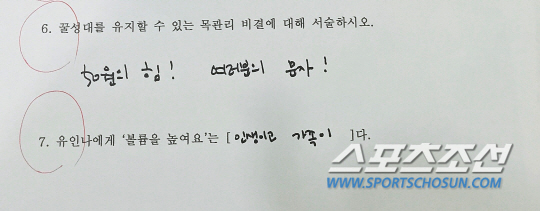 6. 꿀성대를 유지할 수 있는 목관리 비결에 대해 서술하시오.
50원의 힘! 여러분의 문자!
7. 유인나에게 '볼륨을 높여요'는 [인생이고 가족이]다.
스포츠조선
WWW.SPORTSCHOSUN.COM